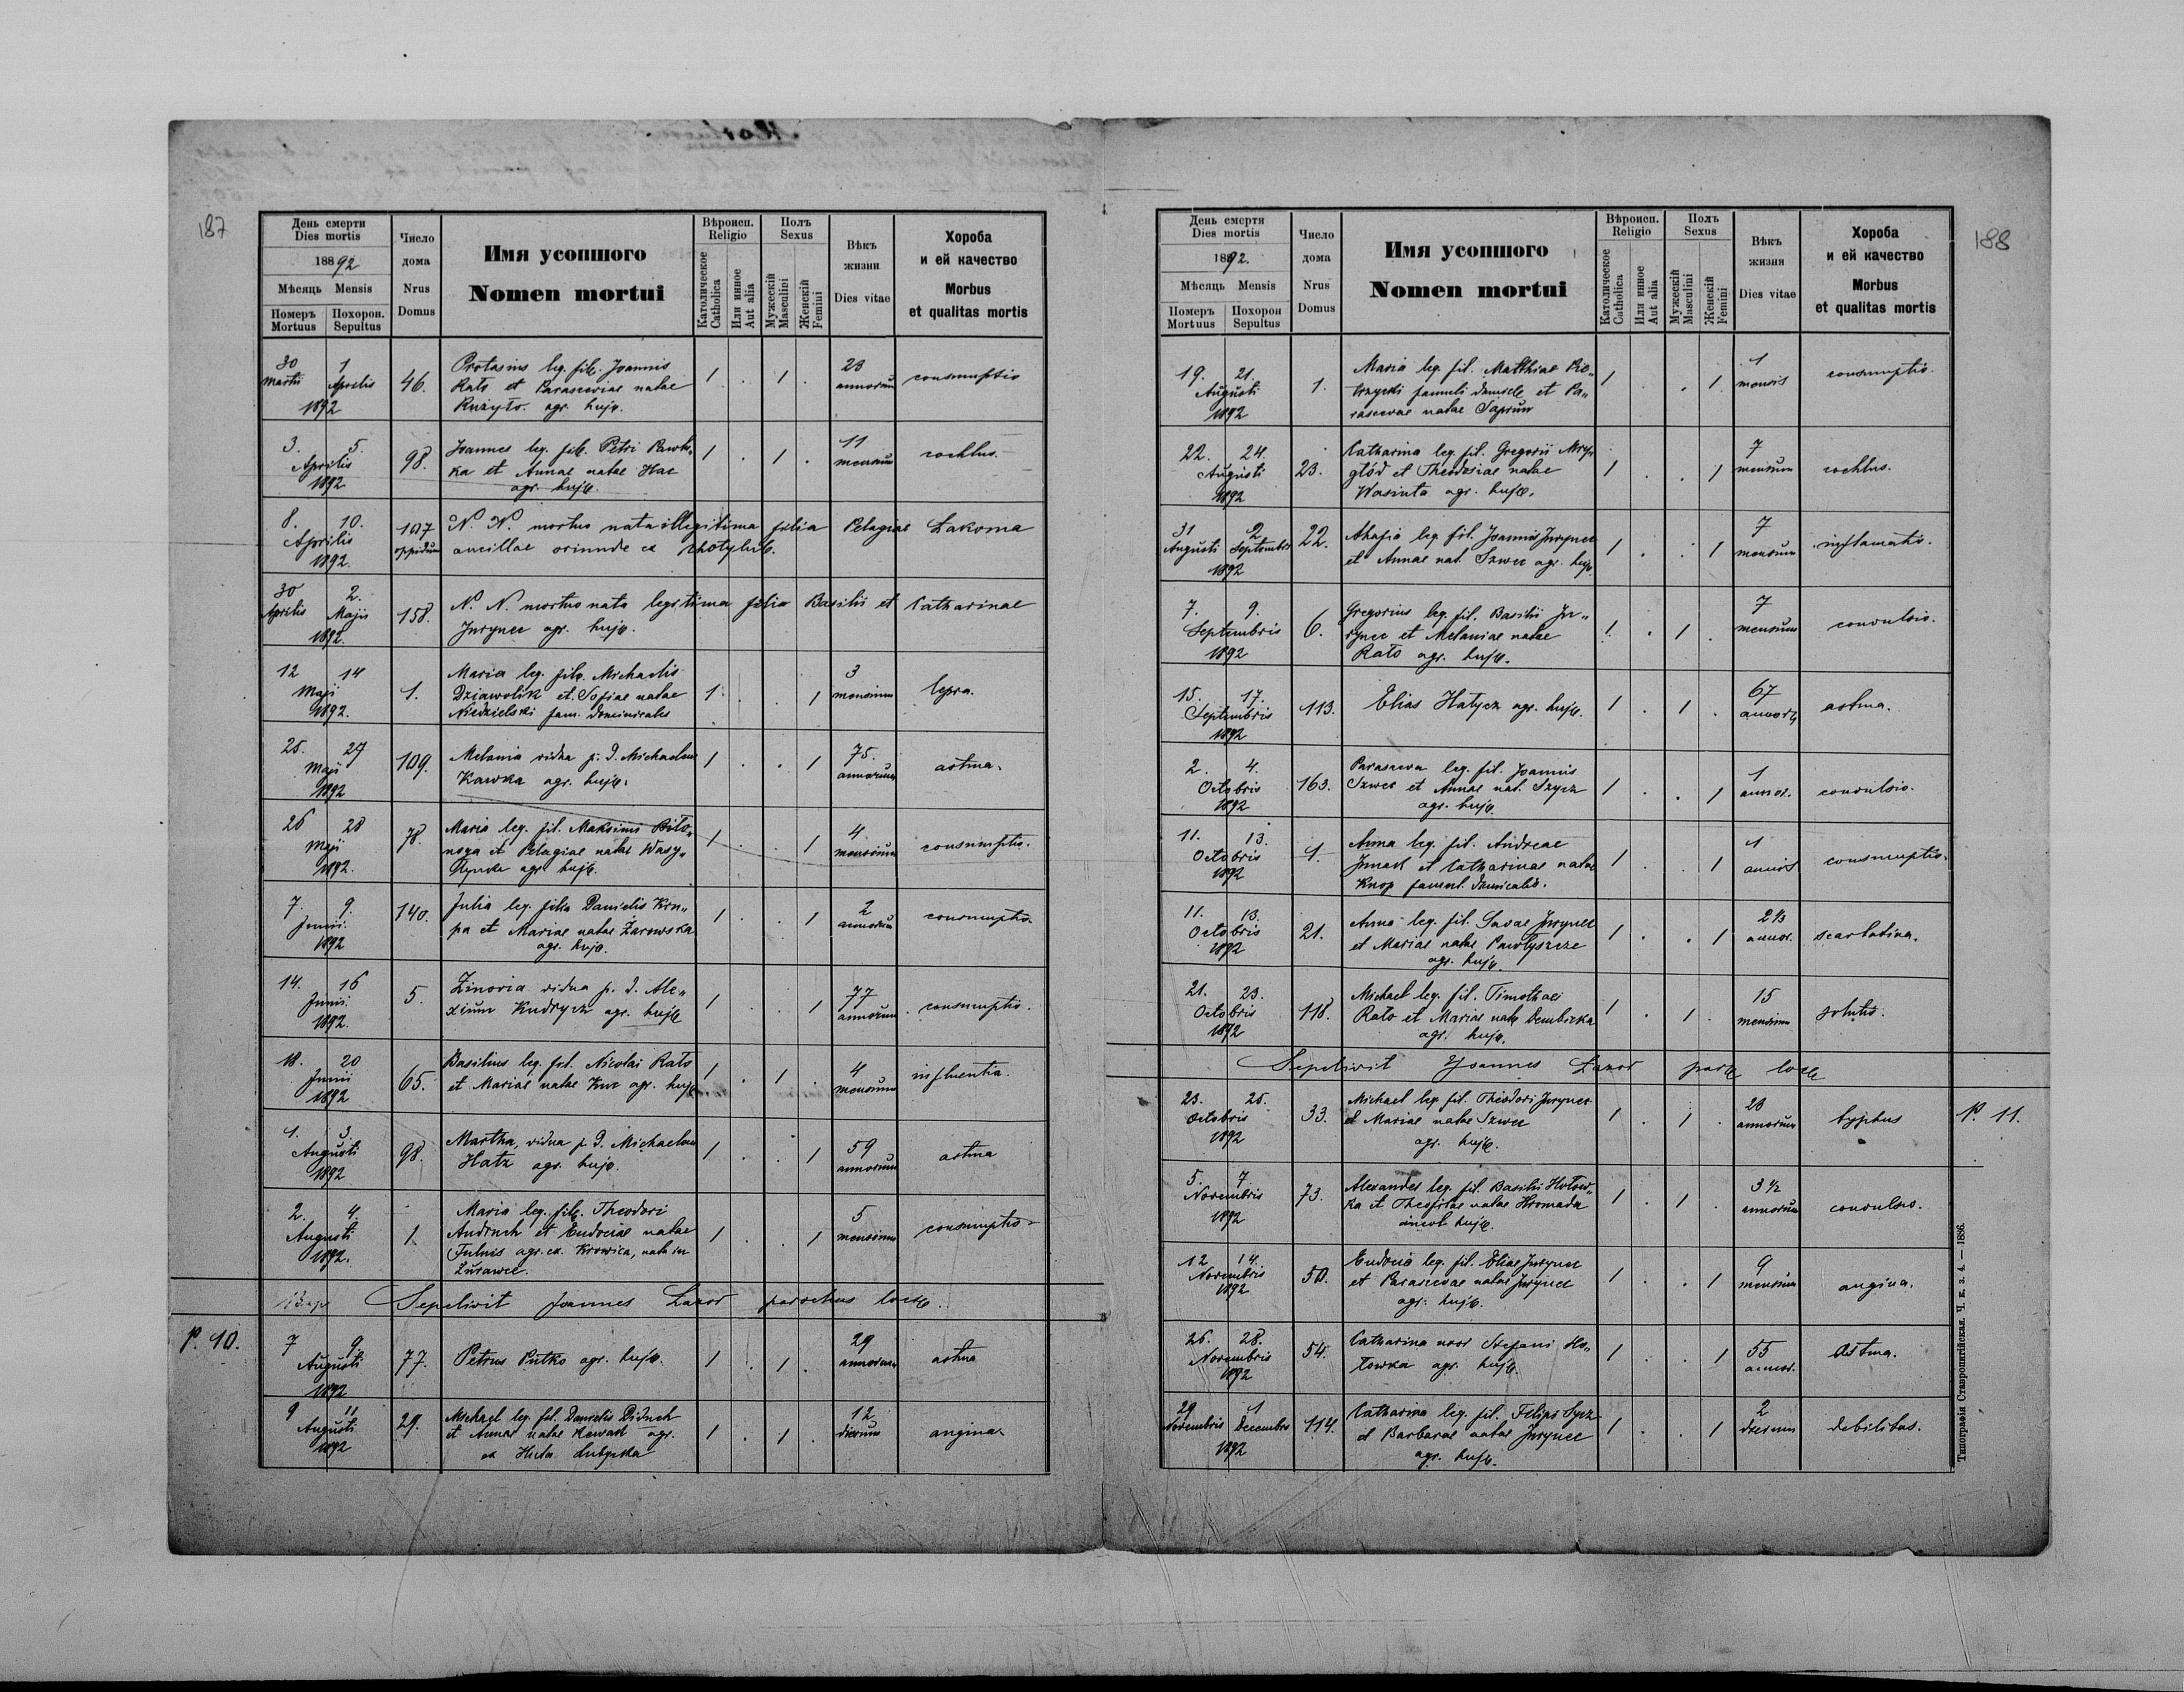 187
День смерти
Dies mortis
1892
Мѣсяць Mensis
Померъ Mortuus
Похорон. Sepultus
Число дома
Nrus Domus
Имя усопшого
Nomen mortui
Вѣроисп.
Religio
Католическое Catholica
Или инное Aut alia
Полъ
Sexus
Мужескій Masculini
Женскій Femini
Вѣкъ жизни
Dies vitae
Хороба
и ей качество
Morbus
et qualitas mortis
30 Martii 1 Aprilis 1892 46. Protasius leg. fil. Joannis
Rato et Parasceviae natae
Ruzyło. agr. huj. 1 . 1 . 23 annorum consumptio
3. 5. Aprilis 1892 98. Joannes leg. fil. Petri Pawło„
ka et Annae natae Hac
agr. huj. 1 . 1 . 11 mensium cochlus.
8. 10. Aprilis 1892. 107 oppidum N. N. mortuo nata illegitima filia Pelagiae Łakoma
ancillae oriunde ex Chotylub.
30 Aprilis 2. Maji 1892. 158. N. N. mortuo nata legitima filia Basilii et Catharinae
Jurynec agr. huj.
12 14 Maji 1892. 1. Maria leg. fil. Michaelis
Dziawolik et Sofiae natae
Niedzielski fam. dominicalis 1 . . 1 3 mensium lepra.
25. 27 Maji 1892 109. Melania vidua p. d. Michaelem
Kawka agr. huj. 1 . . 1 75. annorum astma.
26 28 Maji 1892. 78. Maria leg. fil. Maksimi Biło„
noga et Pelagiae natae Wasy„
agr. huj. 1 . . 1 4 mensium consumptio.
7. 9. Junii. 1892 140. Julia leg. filia Danielis Kru„
pa et Mariae natae Żarowska
agr. huj. 1 . . 1 2 annorum consumptio.
14. 16 Junii. 1892. 5. Zinovia vidua p. d. Ale„
xium Kudrycz agr. huj. 1 . . 1 77 annorum consumptio.
18. 20 Junii 1892 65. Basilius leg. fil. Nicolai Rato
et Mariae natae Kuc agr. huj. 1 . 1 . 4 mensium influentia.
1. 3 Augusti 1892 98. Martha vidua p. d. Michaelem
Hatz agr. huj. 1 . . 1 59 annorum astma
2. 4. Augusti 1892. 1. Maria leg. fil. Theodori
Andruch et Eudociae natae
Fulnis agr. ex Krowica, nata in
Żurawce. 1 . . 1 5 mensium consumptio
Sepelivit Joannes Łazor parochus loci.
P. 10. 7 9. Augusti 1892 77. Petrus Putko agr. huj. 1 . 1 . 29 annorum astma
9 11 Augusti 1892 29. Michael leg. fil. Danielis Diduch
et Annae natae Kowal agr.
ex Huta Lubycka 1 . 1 . 12 dierum angina.
188
День смерти
Dies mortis
1892.
Мѣсяць Mensis
Померъ Mortuus
Похорон Sepultus
Число дома
Nrus Domus
Имя усопшого
Nomen mortui
Вѣроисп.
Religio
Католическое Catholica
Или инное Aut alia
Полъ
Sexus
Мужескій Masculini
Женскій Femini
Вѣкъ жизня
Dies vitae
Хороба
и ей качество
Morbus
et qualitas mortis
19. 21. Augusti 1892 1. Maria leg. fil. Matthiae Pie„
trzycki famuli et Pa„
rascevae natae Saprun 1 . . 1 1 mensis consumptio.
22. 24. Augusti 1892 23. Catharina leg. fil. Gregorii Mry„
głód et Theodosiae natae
Wasiuta agr. huj. 1 . . 1 7 mensium cochlus.
31 Augusti 2 Septembris 1892 22. Ahafia leg. fil. Joannis Jurynec
et Annae nat. Szwec agr. huj. 1 . . 1 7 mensium inflamatio.
7. 9. Septembris 1892 6. Gregorius leg. fil. Basilii Ju„
rynec et Melaniae natae
Rato agr. huj. 1 . 1 . 7 mensium convulsio.
15. 17. Septembris 1892 113. Elias Hałycz agr. huj. 1 . 1 . 67 annor. astma.
2. 4. Octobris 1892 163. Parasceva leg. fil. Joannis
Szwec et Annae nat. Szycz
agr. huj. 1 . . 1 1 annor. convulsio.
11. 13. Octobris 1892 1. Anna leg. fil. Andreae
et Catharinae natae
Knop famul. dominicalis. 1 . . 1 1 consumptio.
11. 13. Octobris 1892 21. Anna leg. fil. Savae Jurynec
et Mariae natae Pawłyszcze
agr. huj. 1 . . 1 annor. scarlatina.
21. 23. Octobris 1892 118. Michael leg. fil. Timothaei
Rato et Mariae natae Dembicka
agr. huj. 1 . 1 . 15 mensium
Sepelivit Joannes Łazor loci
23. 25. Octobris 1892 33. Michael leg. fil. Theodori Jurynec
et Mariae natae Szwec
agr. huj. 1 . 1 . 23 annorum typhus P 11.
5. 7. Novembris 1892 73. Alexander leg. fil. Basilii Hołow„
ka et Theofilae natae Hromada
huj. 1 . 1 . 3 ½ annorum convulsio.
12 14. Novembris 1892 50. Eudocia leg. fil. Eliae Jurynec
et Parascevae natae Jurynec
agr. huj. 1 . . 1 9 mensium angina.
26. 28. Novembris 1892 54. Catharina uxor Stefani Ho„
łowka agr. huj. 1 . . 1 55 annor. Astma.
29 Novembris 1 Decembris 1892 114. Catharina leg. fil. Filipi Sycz
et Barbarae natae Jurynec
agr. huj. 1 . . 1 2 dierum debilitas.
Типографія Ставропигійская. Ч. к. з. 4. — 1886.